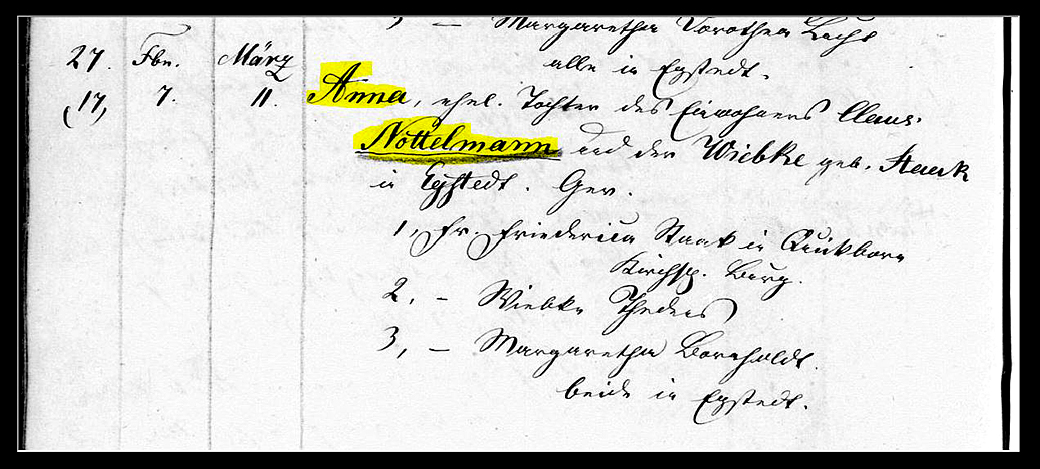 3, – Margaretha Dorothea Lochs
alle in Egstedt.
27. Fbr. März
(17, 7. 11. Anna, ehel. Tochter des Einwohners Claus
Nottelmann und der Wiebke geb. Staack
in Egstedt. Gev.
1, Fr. Friederica Staak in Quickborn
Kirchsp. Burg.
2, – Wiebke Theders
3, – Margaretha Bornholdt.
beide in Egstedt.